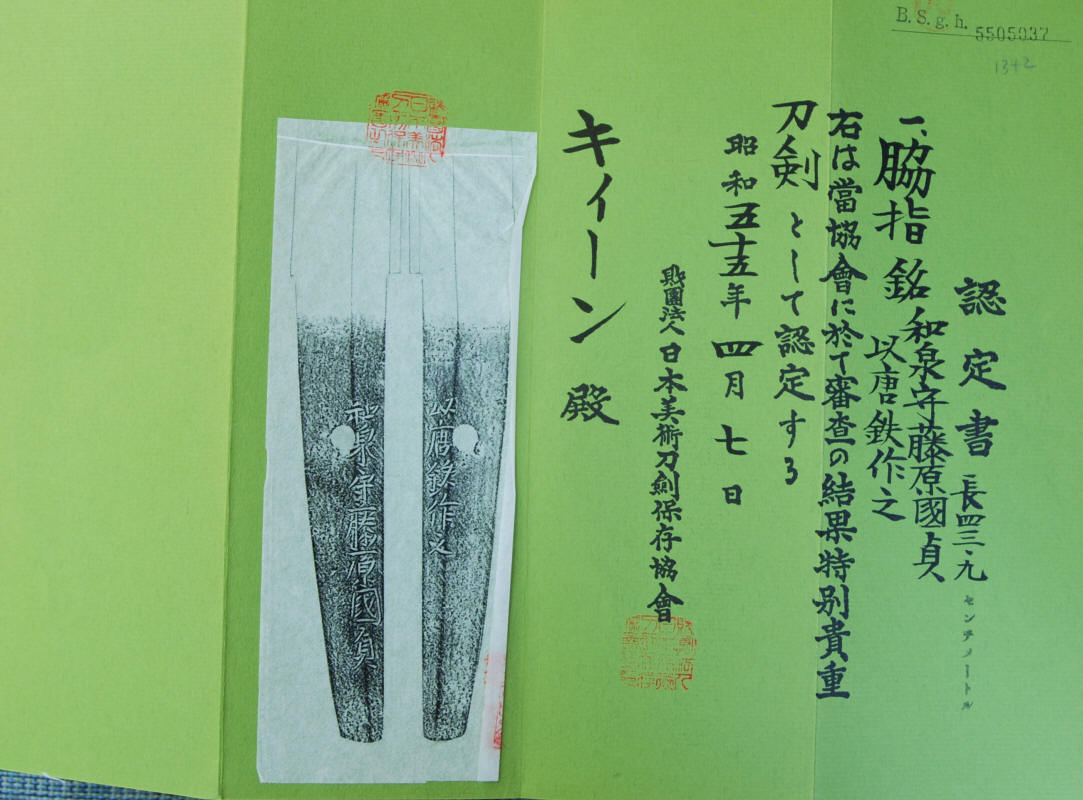 B. S. g. h. 5505037
1342
認定書
長四三・九センチメートル
一、脇指 銘 和泉守藤原國貞
以唐鉄作之
右は當協會に於て審査の結果特別貴重
刀剣として認定する
昭和五十五年四月七日
財團法人日本美術刀劍保存協會
キィーン殿
以唐鉄作之
和泉守藤原國貞